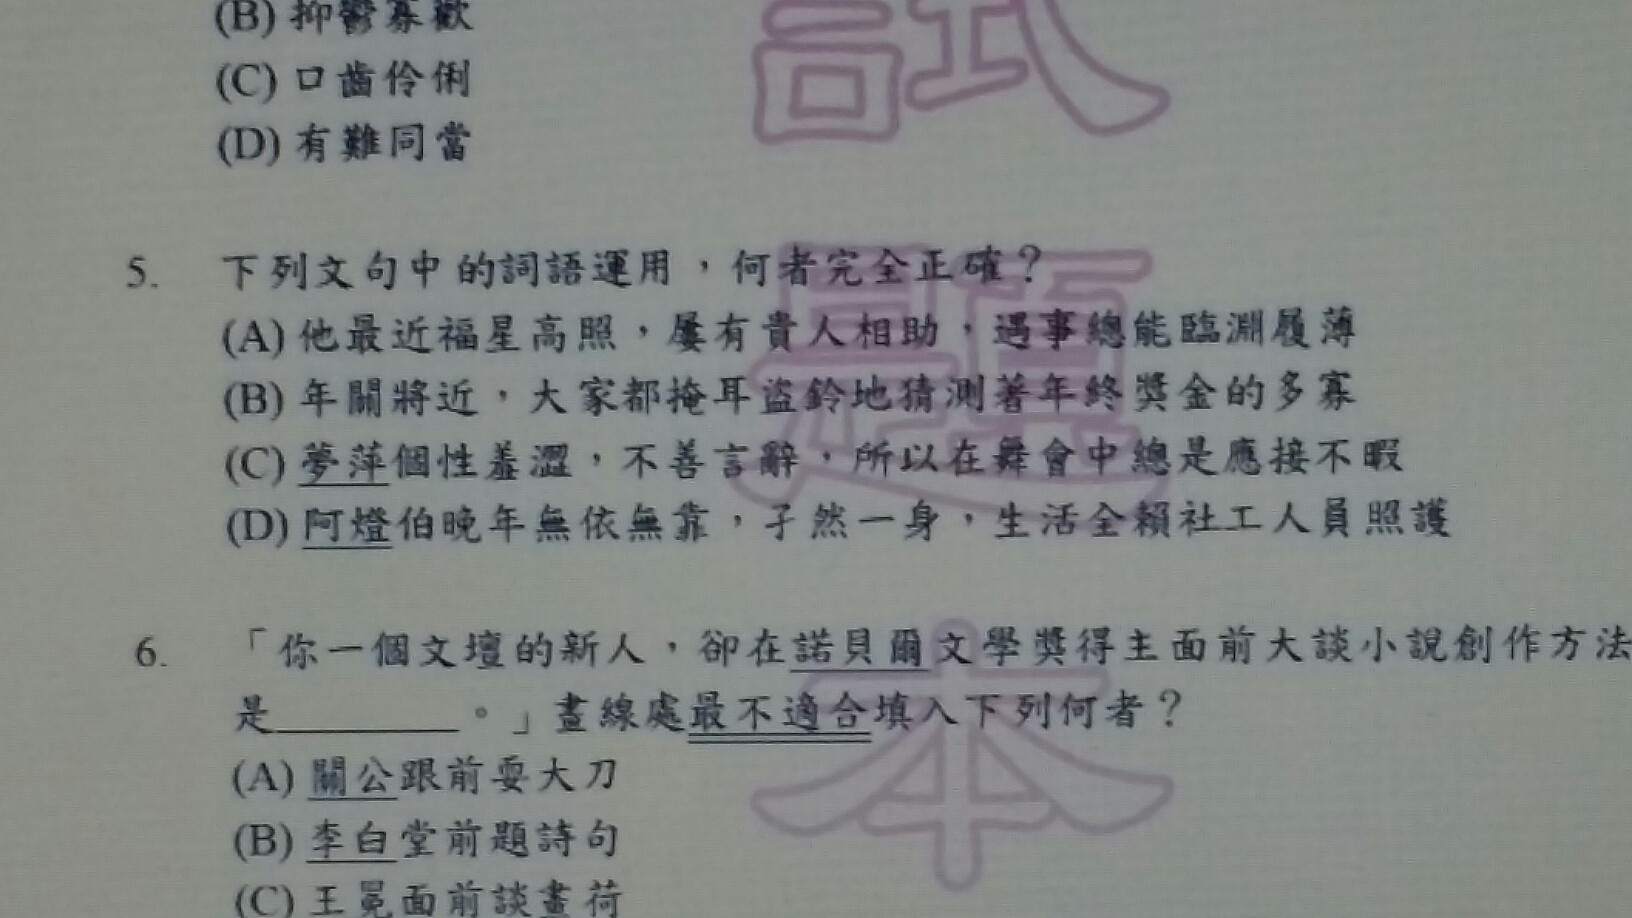 (B) 抑鬱寡歡
(C) 口齒伶俐
(D) 有難同當
5. 下列文句中的詞語運用，何者完全正確？
(A) 他最近福星高照，屢有貴人相助，遇事總能臨淵履薄
(B) 年關將近，大家都掩耳盜鈴地猜測著年終獎金的多寡
(C) 夢萍個性羞澀，不善言辭，所以在舞會中總是應接不暇
(D) 阿燈伯晚年無依無靠，孑然一身，生活全賴社工人員照護
6. 「你一個文壇的新人，卻在諾貝爾文學獎得主面前大談小說創作方法
是________。」畫線處最不適合填入下列何者？
(A) 關公跟前耍大刀
(B) 李白堂前題詩句
(C) 王冕面前談畫荷
試題本